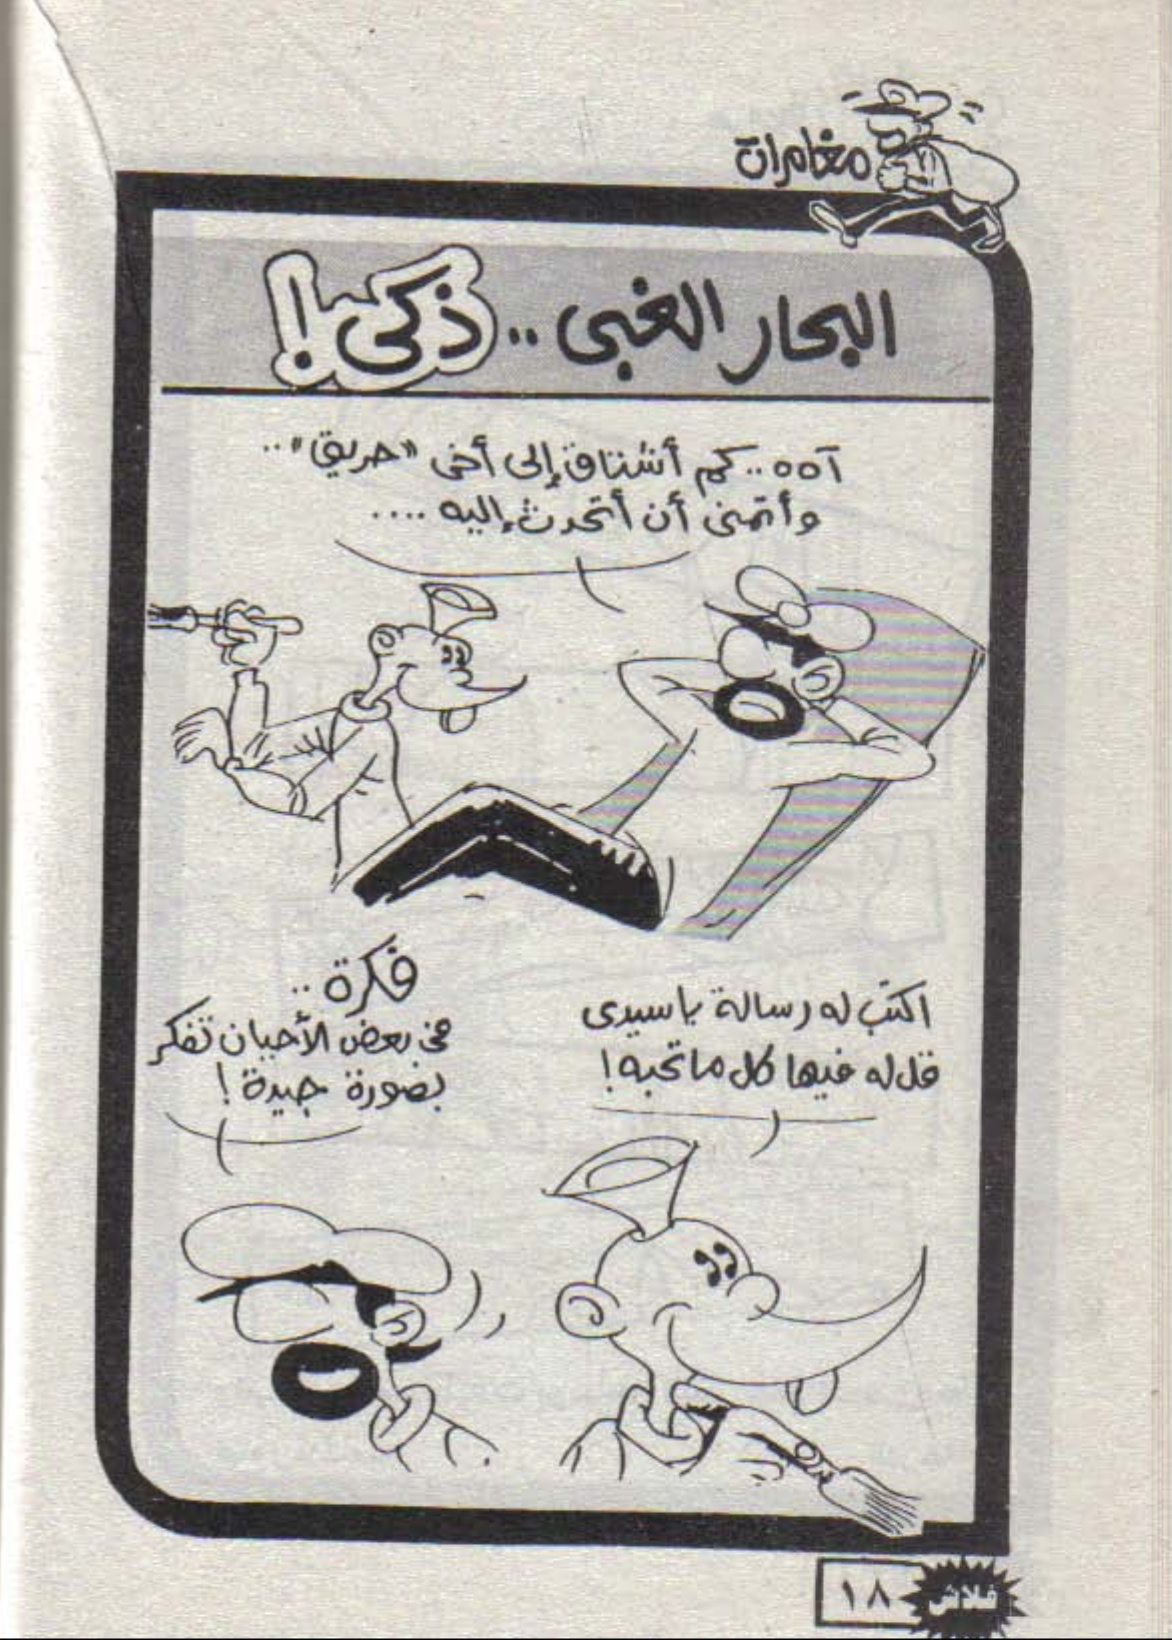 مغامرات
البحار الغبى .. ذكى !
آ ه ه .. كم أشتاق إلى أخى "حريق" ..
وأتمنى أن أتحدث إليه ....
اكتب له رسالة ياسيدى
قل له فيها كل ما تحبه !
فكرة ..
فى بعض الأحيان تفكر
بصورة جيدة !
فلاش
١٨